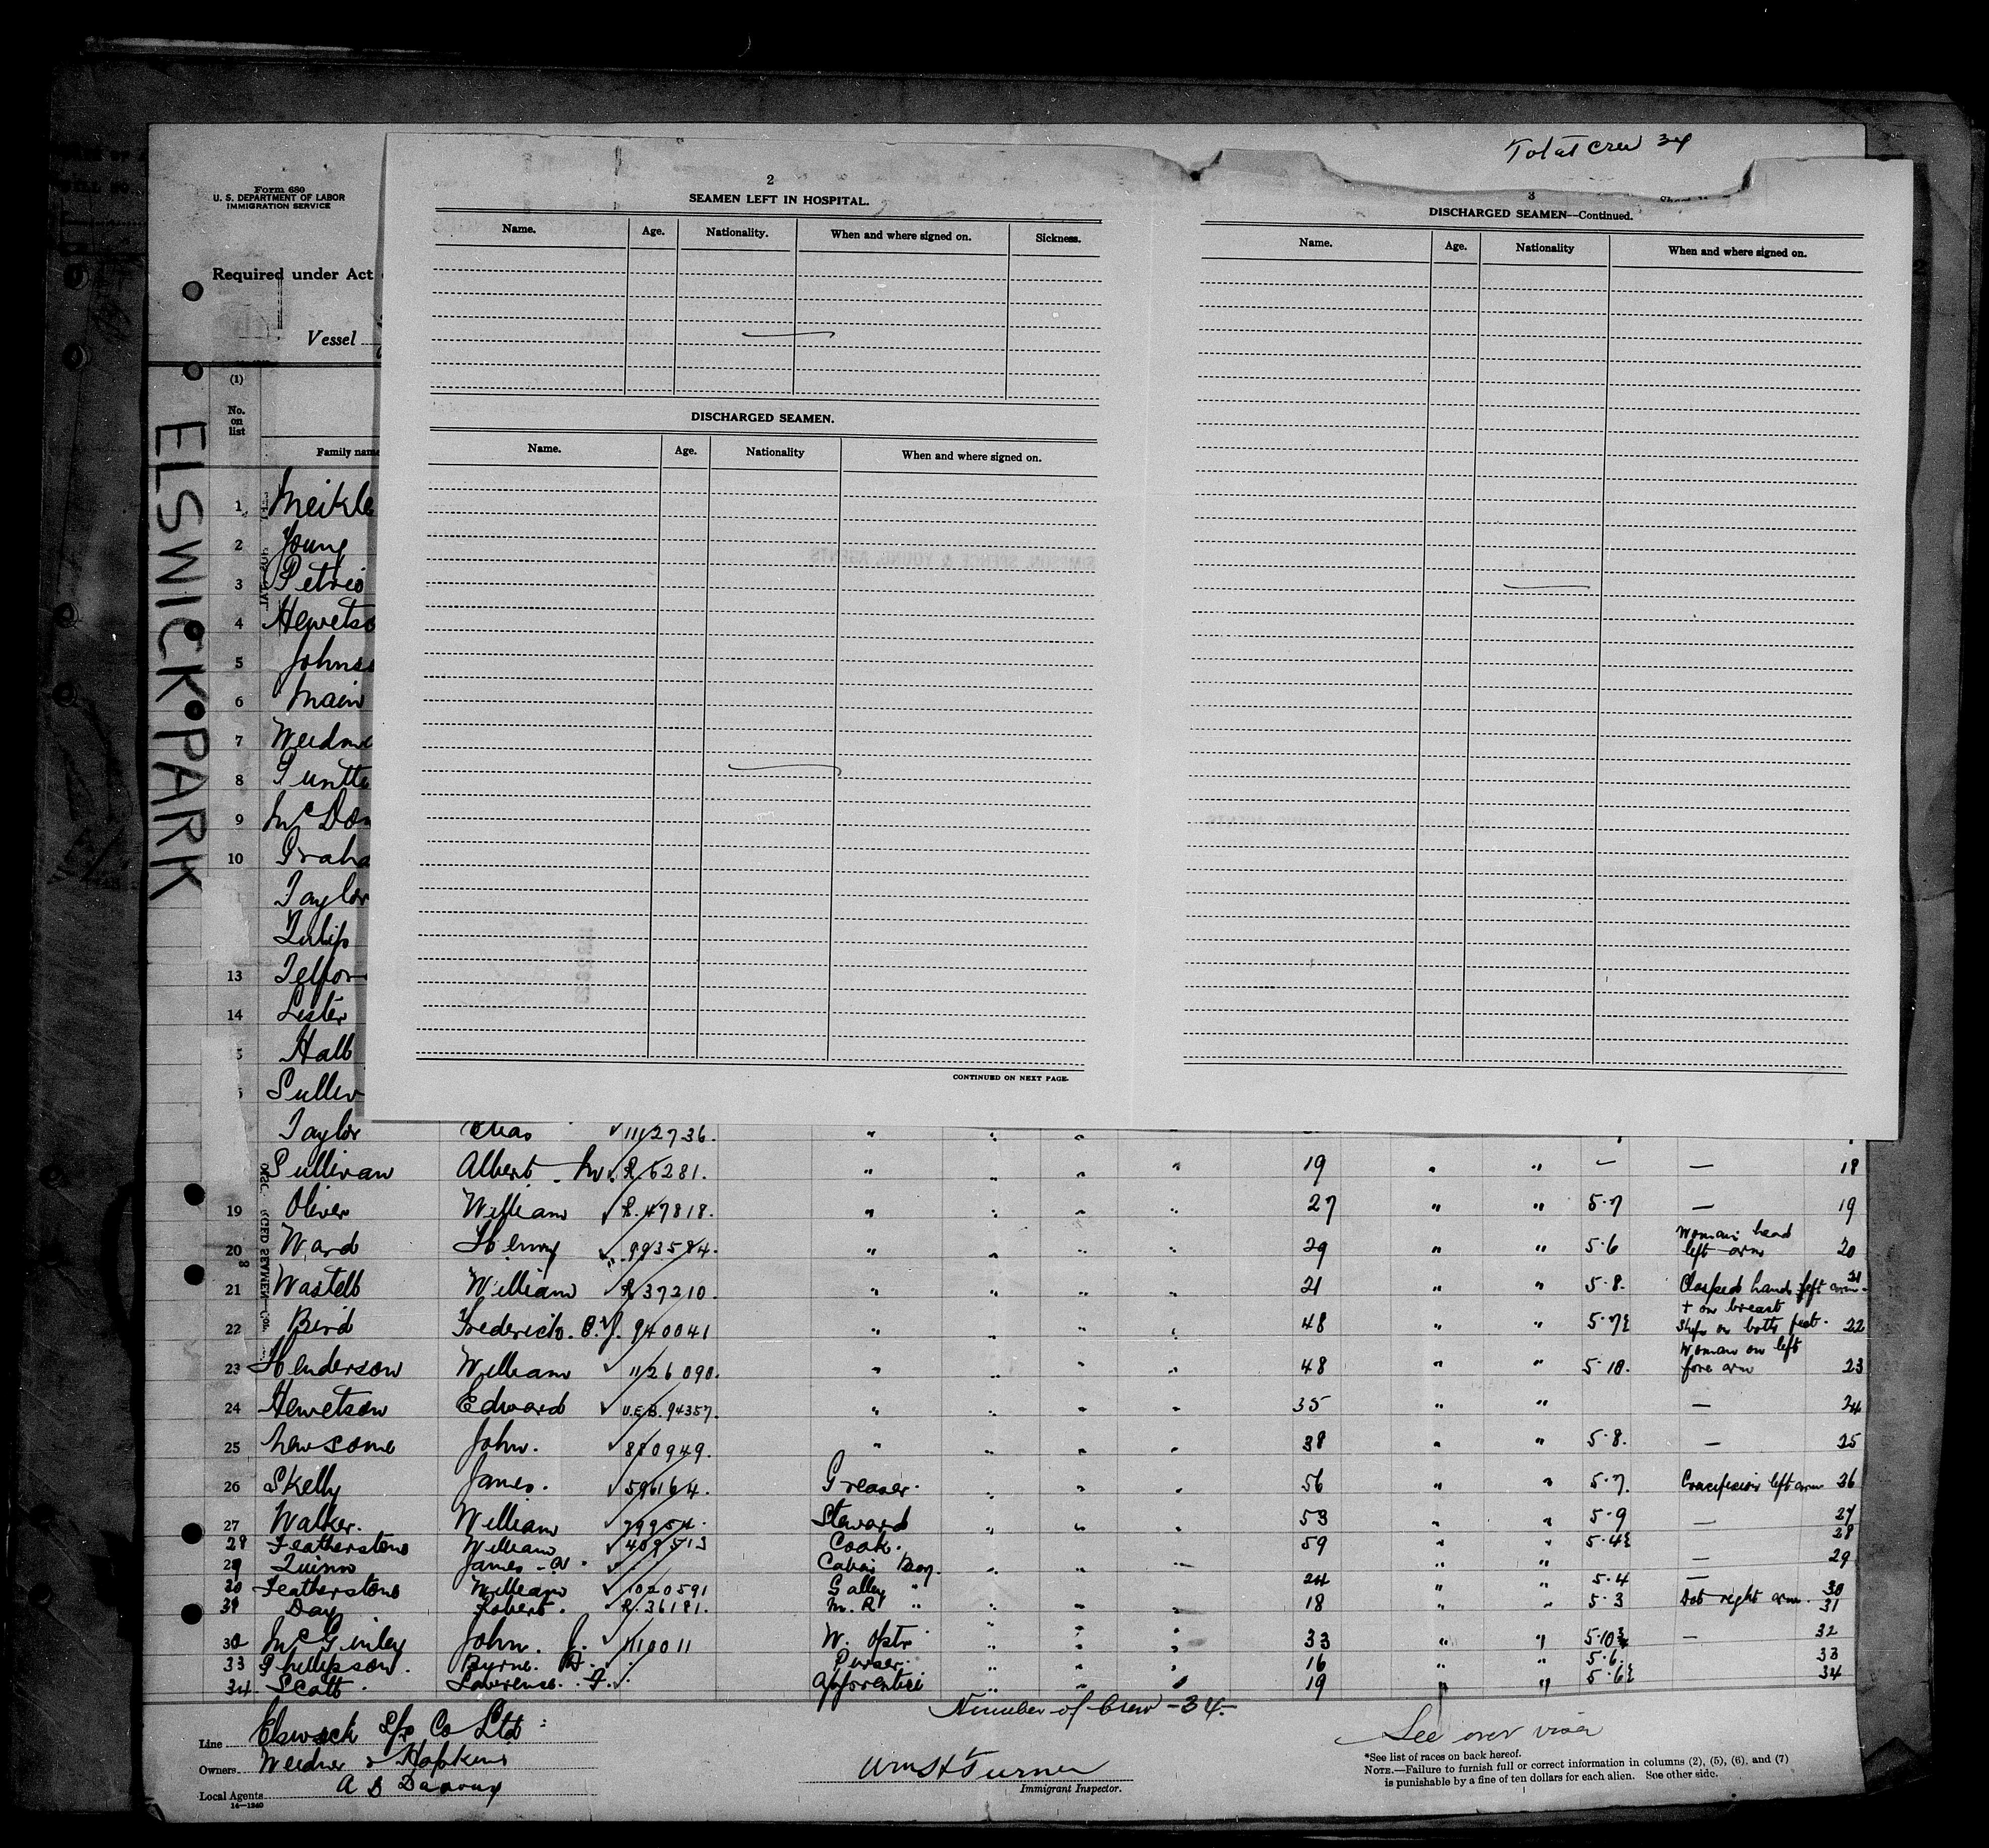 Total Crew 34
Form 680
U. S. DEPARTMENT OF LABOR
IMMIGRATION SERVICE
Required under Act
Vessel
ELSWICK PARK
(1)
No. on list
Family name
2
SEAMEN LEFT IN HOSPITAL.
Name. Age. Nationality. When and where signed on. Sickness.
DISCHARGED SEAMEN.
Name. Age. Nationality When and where signed on.
CONTINUED ON NEXT PAGE.
3
DISCHARGED SEAMEN—Continued.
Name. Age. Nationality When and where signed on.
SIMPSON, SPENCE & YOUNG, AGENTS
1 Meikle
2 Young
3 Petrie
4 Hewetso
5 Johnso
6 Main
7
8
9 McDon
10 Graha
Taylor
Tulip
13 Telfor
14 Lester
Hall
Sulliv
Taylor Chas 1112736. " " "
Sullivan Albert M. R. 6281. " " " " 19 " " — — 18
19 Oliver William R. 47818. " " " " 27 " " 5.7 — 19
20 Ward Henry 993584. " " " " 29 " " 5.6 Woman head left arm 20
21 Wastell William R 37210. " " " " 21 " " 5.8. Clasped hands left arm. 21
22 Bird Frederick. 940041 " " " " 48 " " 5.7½ + on breast Ship on both feet. 22
23 Henderson William 1126090. " " " " 48 " " 5.10. Woman on left fore arm 23
24 Hewetson Edward 94357. " " " " 35 " " — 24
25 Newsome John. 880949. " " " " 38 " " 5.8. — 25
26 Skelly James. 596164. Greaser. " " " 56 " " 5.7. Crucifixion left arm 26
27 Walker. William 79954. Steward " " " 53 " " 5.9 — 27
28 Featherstone William 409513 Cook. 59 " " 5.4½ 28
29 Quinn James Cabin Boy. " " " " — 29
30 Featherstone William 1020591 Galley " 24 " " 5.4 — 30
31 Day Robert. R. 36181. M. R. " " " " 18 " " 5.3 Dot right arm. 31
32 McGinley John. J. 1110011 W. Optr " " " 33 " " 5.10¾ — 32
33 Phillipson. Byrne. Purser. " " " 16 " " 5.6. 33
34 Scott. Lawrence. F. Apprentice " " " 19 " " 5.6½ 34
Number of Crew - 34.
Line Elswick S/p Co Ltd
Owners Weidner & Hopkins
Local Agents
14—1240
Wm H Turner
Immigrant Inspector.
See over visa
*See list of races on back hereof.
NOTE.—Failure to furnish full or correct information in columns (2), (5), (6), and (7)
is punishable by a fine of ten dollars for each alien. See other side.